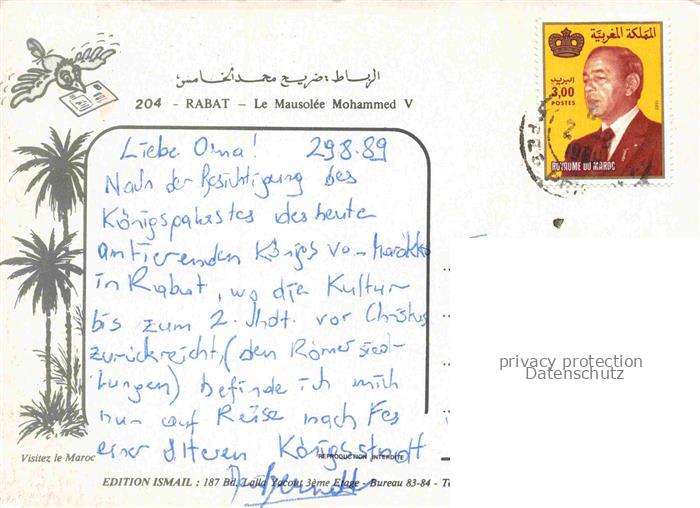 المملكة المغربية
البريد
3,00
POSTES
ROYAUME DU MAROC
الرباط : ضريح محمد الخامس
204 - RABAT – Le Mausolée Mohammed V
Liebe Oma! 29.8.89
Nach der Besichtigung des
Königspalastes des heute
amtierenden Königs von Marokko
in Rabat, wo die Kultur
bis zum 2. Jhdt. vor Christus
zurückreicht, (den Römersied-
lungen) befinde ich mich
nun auf Reise nach Fes
einer älteren Königsstadt
privacy protection
Datenschutz
Visitez le Maroc
REPRODUCTION INTERDITE
EDITION ISMAIL : 187 Bd. Lalla Yacout 3ème Etage - Bureau 83-84 - Té